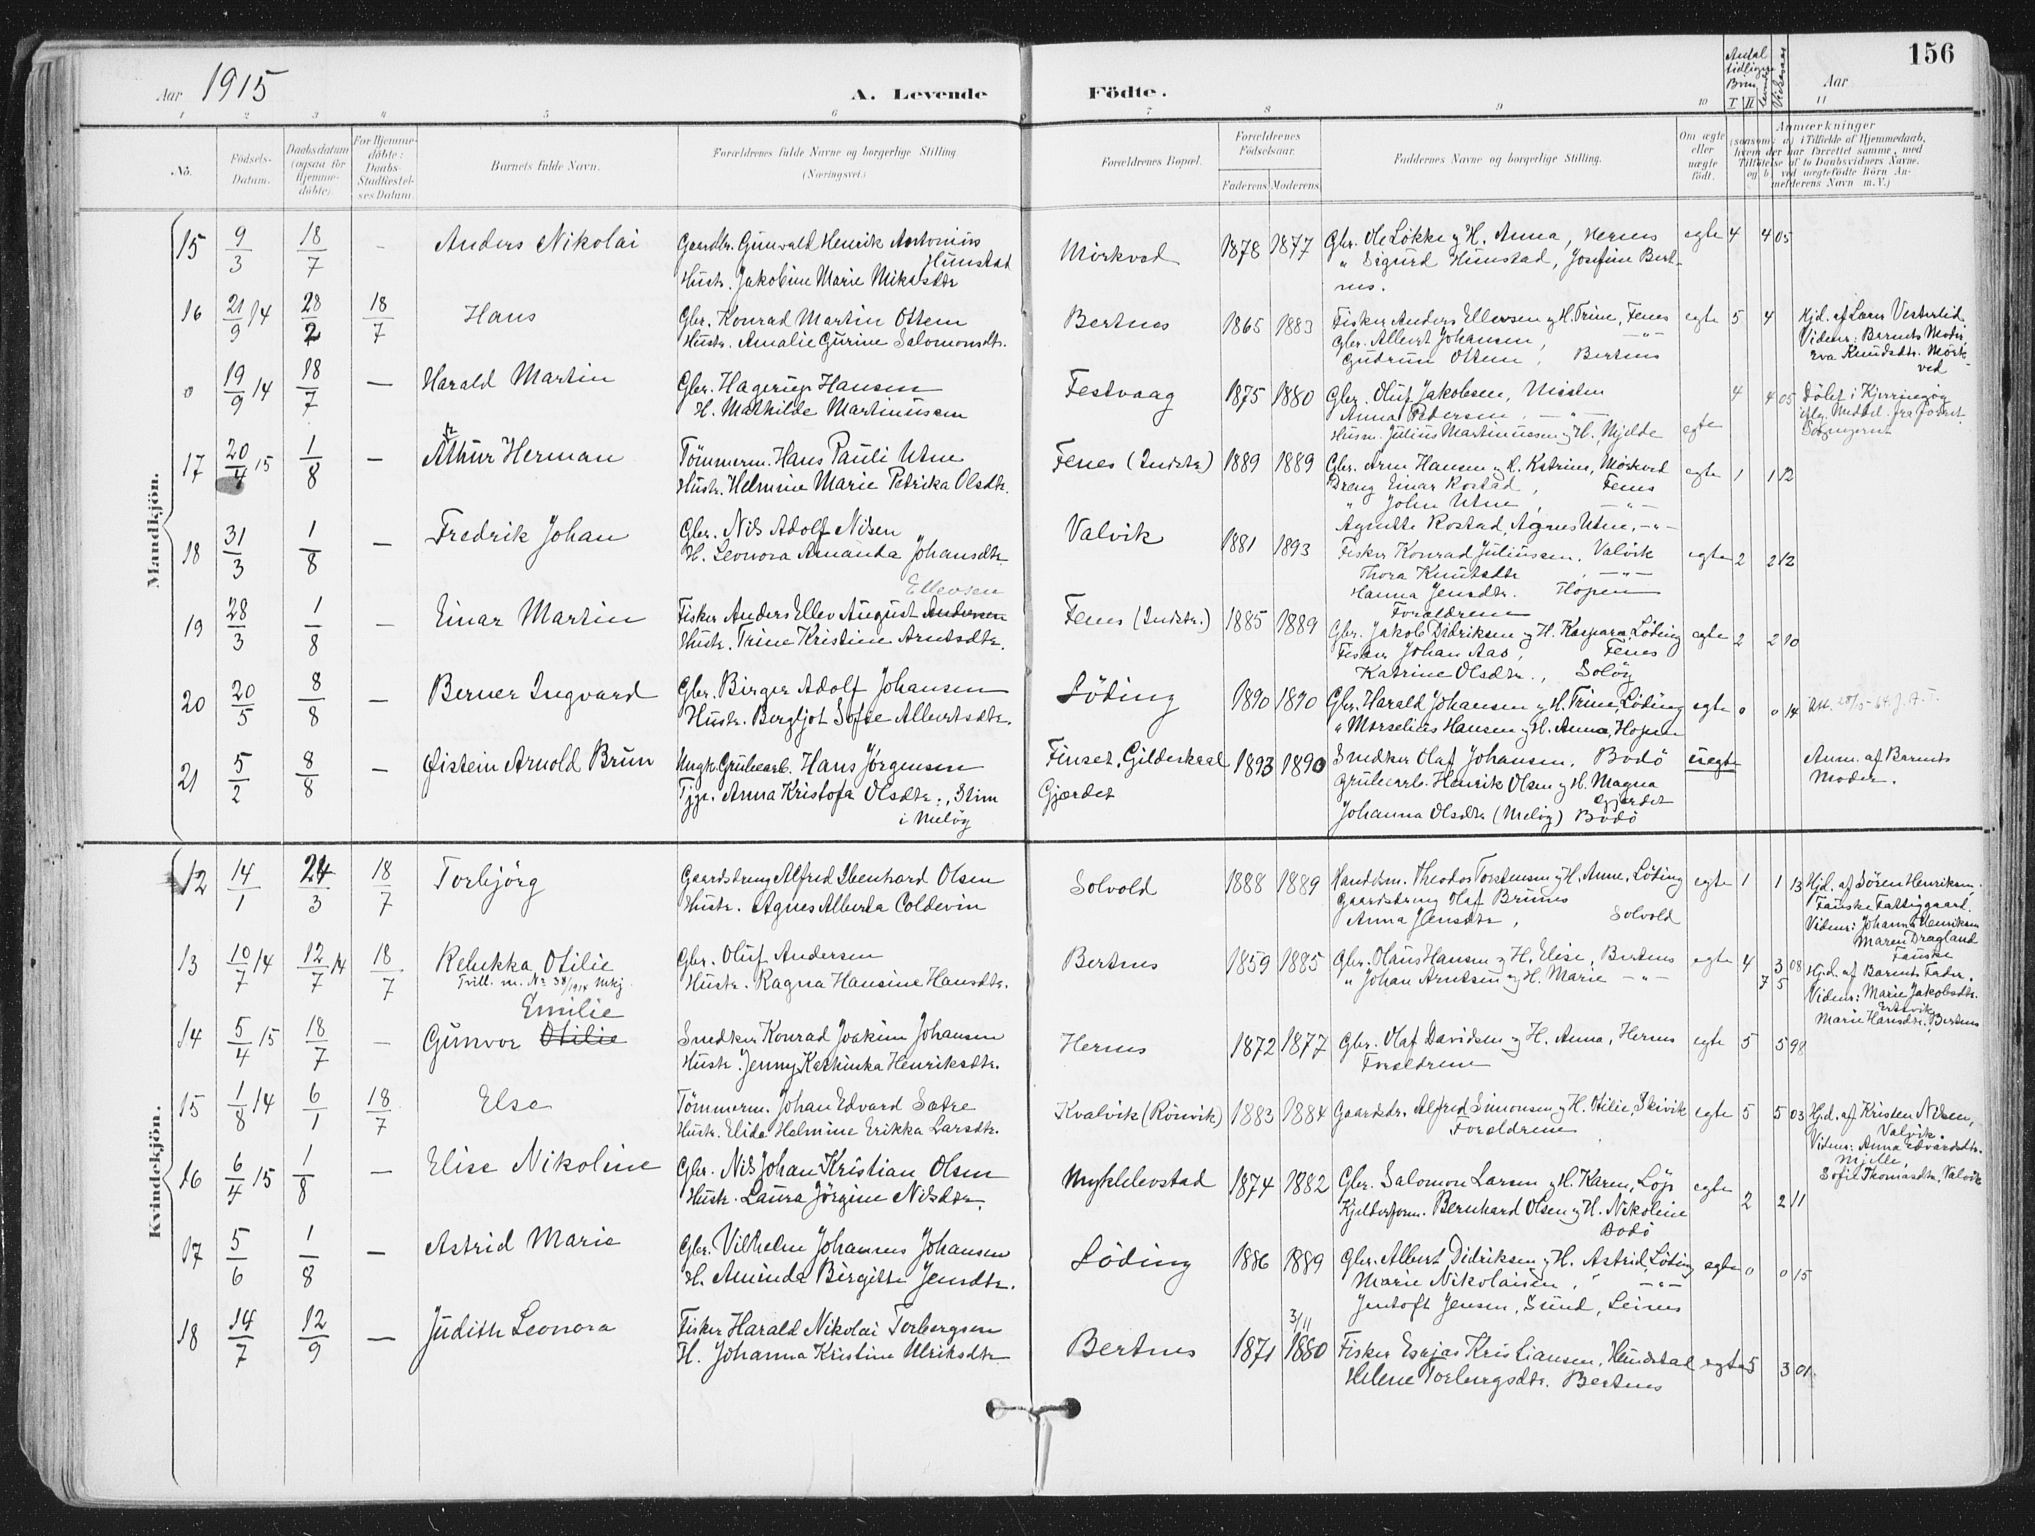 156
Aar 1915
A. Levende
Födte.
Antal tidligere Børn
I II
Aar
1 2 3 4 5 6 7 8 9 10 11
No.
Födsels-Datum.
Daabsdatum (ogsaa for Hjemmedöbte).
For Hjemmedöbte: Daabs-Stadfæstelses Datum.
Barnets fulde Navn.
Forældrenes fulde Navne og borgerlige Stilling (Næringsvei.)
Forældrenes Bopæl.
Forældrenes Födselsaar.
Faderens. Moderens.
Faddernes Navne og borgerlige Stilling.
Om ægte eller uægte födt.
Anmærkninger
(saasom: a) i Tilfælde af Hjemmedaab, hvem der har forrettet samme, med Tilføielse af to Daabsvidners Navne. og b) ved uægtefödte Börn Anmelderens Navn m. V.)
Mandkjön.
15 9/3 18/7 - Anders Nikolai
Gaardbr. Gunvald Henrik Antonius Hunstad
Hustr. Jakobine Marie Mikalsdtr
Mörkved 1878 1877
Gbr. Ole Løkke og H. Anna, Hernes
" Sigurd Hunstad, Josefine Bertnes.
egte 4 4 05
16 21/9 14 28/2 18/7 Hans
Gbr. Konrad Martin Ottem
Hustr. Amalie Gurine Salomonsdtr.
Bertnes 1865 1883
Fisker Anders Ellevsen og H. Trine, Fenes
Gbr. Albert Johansen, -"-
Gudrun Ottem, Bertnes
egte 5 4
Hjd. af Lærer Vestertid
Vidner: Barnets Moder
Eva Knudsdtr. Mörkved
0 19/9 14 18/7 - Harald Martin
Gbr. Hagerup Hansen
H. Mathilde Martinussen
Festvaag 1875 1880
Gbr. Oluf Jakobsen, Misten
Anna Pedersen -"-
Husm. Julius Martinussen og H. Mjelde
egte 4 4 05
Døbt i Kjerringøy
17 20/4 15 1/8 - Athur Herman
r
Tömmerm. Hans Pauli Utne
Hustr. Helmine Marie Petrika Olsdtr.
Fenes (Indstr.) 1889 1889
Gbr. Arne Hansen og H. Katrine, Mörkved
Dreng Einar Rostad, Fenes
" John Utne, -"-
Agnethe Rostad, Agnes Utne, -"-
egte 1 1 12
18 31/3 1/8 - Fredrik Johan
Gbr. Nils Adolf Nilsen
H. Leonora Amanda Johansdtr.
Valvik 1881 1893
Fisker Konrad Juliussen, Valvik
Thora Knutsdtr , -"-
Hanna Jensdtr. Hopen
Forældrene
egte 2 2 12
19 28/3 1/8 - Einar Martin
Ellevsen
Fisker Anders Ellev August Andersen
Hustr. Trine Kristine Arntsdtr.
Fenes (Indstr.) 1885 1889
Gbr. Jakob Didriksen og H. Kaspara, Löding
Fisker Johan Aas, Fenes
Katrine Olsdtr., Soløy
egte 2 2 10
20 20/5 8/8 - Berner Ingvard
Gbr. Birger Adolf Johansen
Hustr. Bergljot Sofie Albertsdtr.
Löding 1890 1890
Gbr. Harald Johansen og H. Trine, Löding
" Marselius Hansen og H. Anna, Hopen
egte 0 0 14
21 5/2 8/8 - Øistein Arnold Brun
Ungk. Grubearb. Hans Jørgensen
Tjgr. Anna Kristofa Olsdtr., Stim i Meløy
Finset, Gildeskaal
Gjærdet
1893 1890
Snedker Olaf Johansen. Bodö
Grubearb. Henrik Olsen og H. Magna Gjærdet
Johanna Olsdtr (Meløy) Bodö
uegte
Anm. af Barnets Moder.
Kvindekjön.
12 14/1 24/3 18/7 Torbjörg
Gaardsdreng Alfred Ibenhard Olsen
Hustr. Agnes Alberta Coldevin
Solvold 1888 1889
Handelsm. Theodor Torstensen og H. Anne, Löding
Gaardsdreng Olaf Brunes
Anna Jensdtr, Solvold
egte 1 1 13
Hjd. af Sören Henriksen,
Fauske Fattiggaard.
Vidner: Johanna Henriksen
Maren Dragland
Fauske
13 10/7 14 12/7 14 18/7 Rebekka Otilie
Tvill. m. No 38/1914 Mkj.
Gbr. Oluf Andersen
Hustr. Ragna Hansine Hansdtr.
Bertnes 1859 1885
Gbr. Olaus Hansen og H. Elise, Bertnes
" Johan Arntsen og H. Marie -"-
egte 4 7 3 5 08
Hjd. af Barnets Fader.
Vidner: Marie Jakobsdtr.
Ertsvik
Marie Hansdtr. Bertnes
14 5/4 15 18/7 - Gunvor Otilie
Emilie
Snedker Konrad Joakim Johansen
Hustr. Jenny Kathinka Henriksdtr.
Hernes 1872 1877
Gbr. Olaf Davidsen og H. Anna, Hernes
Forældrene
egte 5 5 98
15 1/8 14 6/1 18/7 Else
Tömmerm. Johan Edvard Sætre
Hustr. Elida Helmine Erikka Larsdtr.
Kvalvik (Rönvik) 1883 1884
Gaardbr. Alfred Simonsen og H. Otilie, Skivik
Forældrene
egte 5 5 03
Hjd. af Kristen Nilsen,
Valvik.
Vidner: Anna Edvardsdtr.
Mjelle,
Sofie Thomasdtr, Valvik
16 6/4 15 1/8 - Elise Nikoline
Gbr. Nils Johan Kristian Olsen
Hustr. Laura Jörgine Nilsdtr.
Myklebostad 1874 1882
Gbr. Salomon Larsen og H. Karen, Löp
Kjelderform. Bernhard Olsen og H. Nikoline
Bodö
egte 2 2 11
17 5/6 1/8 - Astrid Marie
Gbr. Vilhelm Johannes Johansen
H. Aminda Birgitte Jensdtr.
Löding 1886 1889
Gbr. Albert Didriksen og H. Astrid, Löding
Marie Nikolaisen, -"-
Jentoft Jensen, Sund, Leines
egte 0 0 15
18 14/7 12/9 - Judith Leonora
Fisker Harald Nikolai Torbergsen
H. Johanna Kristine Ulriksdtr.
Bertnes 1871 3/11 1880
Fisker Esajas Kristiansen, Hundstad
Helene Torbergsdtr. Bertnes
egte 5 3 01